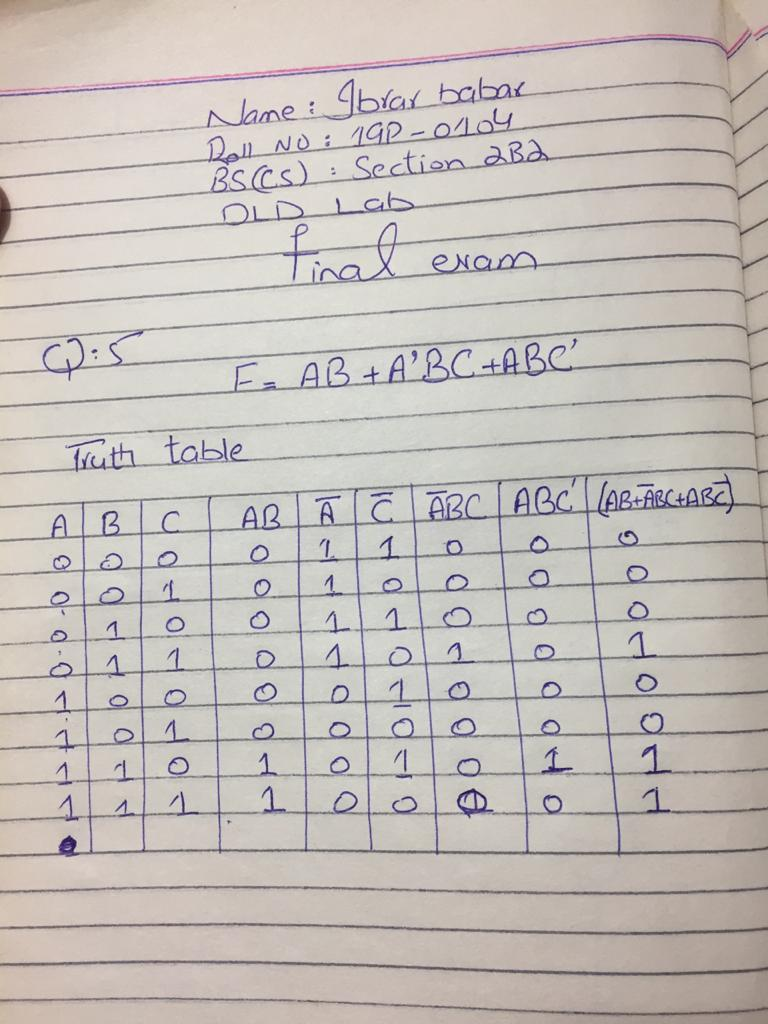 Name: Ibrar babar
Roll NO: 19P-0104
BS(CS): Section 2B2
DLD Lab
final exam
Q:5
F= AB + A'BC + ABC'
Truth table
A B C AB A̅ C̅ A̅BC ABC' (AB+A̅BC+ABC̅)
0 0 0 0 1 1 0 0 0
0 0 1 0 1 0 0 0 0
0 1 0 0 1 1 0 0 0
0 1 1 0 1 0 1 0 1
1 0 0 0 0 1 0 0 0
1 0 1 0 0 0 0 0 0
1 1 0 1 0 1 0 1 1
1 1 1 1 0 0 0 0 1